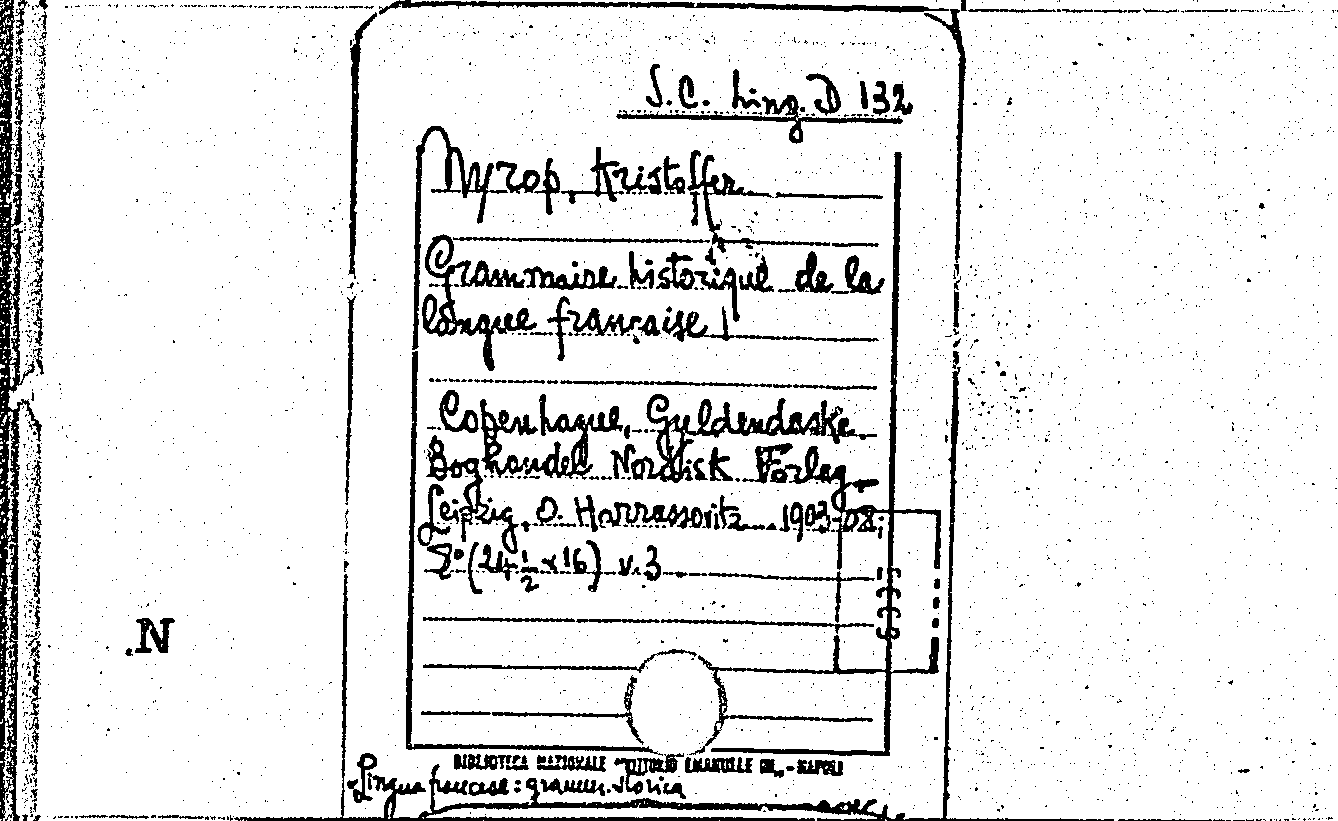 S.C. Ling. D 132
Nyrop, Kristoffer
Grammaire historique de la
langue française
Copenhague, Gyldendaske
Boghandel Nordisk Forlag
Leipzig, O. Harrassovitz 1903-08;
8° (24 1/2 x 16) v. 3
.N
BIBLIOTECA NAZIONALE "VITTORIO EMANUELE III" - NAPOLI
Lingua francese: gramm. storica